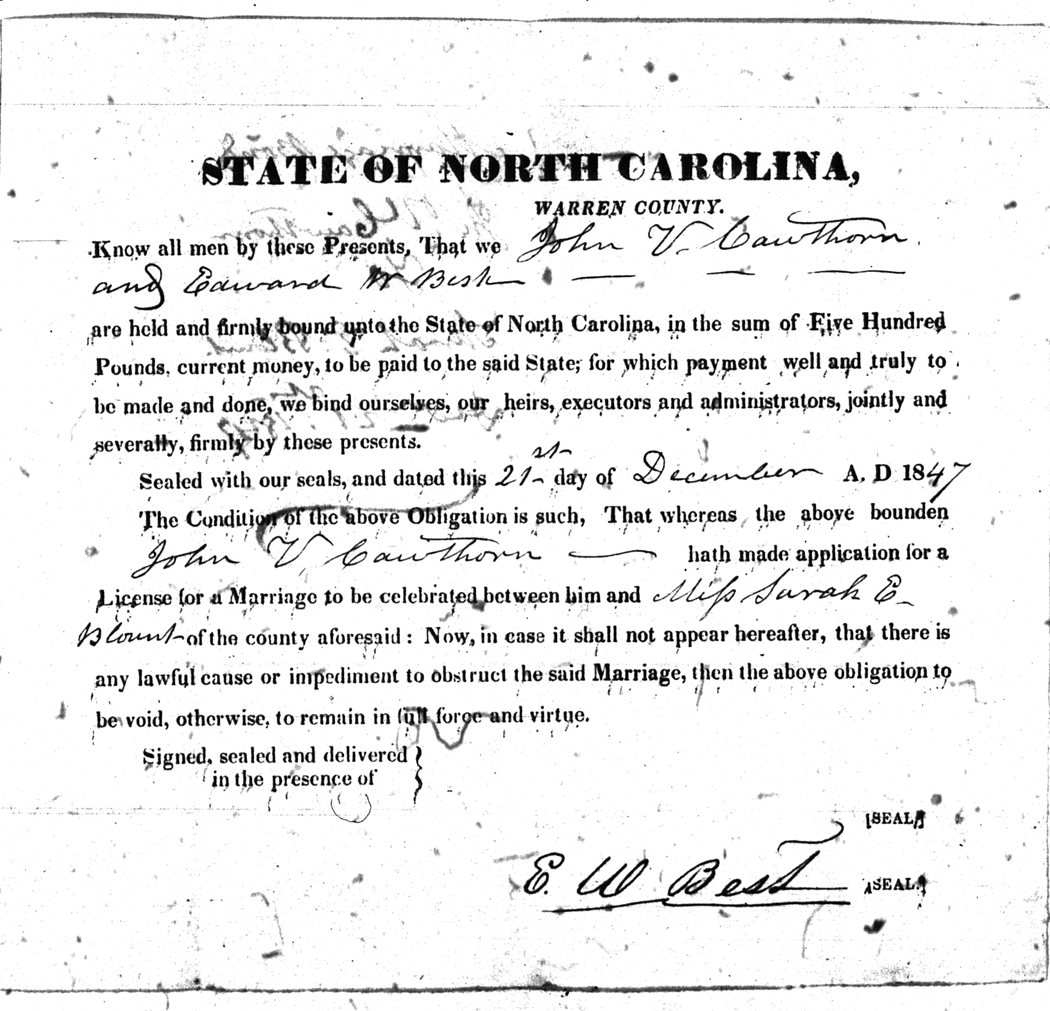 STATE OF NORTH CAROLINA,
WARREN COUNTY.
Know all men by these Presents, That we John V. Cawthorn
and Edward W Best
are held and firmly bound unto the State of North Carolina, in the sum of Five Hundred
Pounds, current money, to be paid to the said State; for which payment well and truly to
be made and done, we bind ourselves, our heirs, executors and administrators, jointly and
severally, firmly by these presents.
Sealed with our seals, and dated this 21st day of December A. D 1847
The Condition of the above Obligation is such, That whereas the above bounden
John V. Cawthorn hath made application for a
License for a Marriage to be celebrated between him and Miss Sarah E
Blount of the county aforesaid: Now, in case it shall not appear hereafter, that there is
any lawful cause or impediment to obstruct the said Marriage, then the above obligation to
be void, otherwise, to remain in full force and virtue.
Signed, sealed and delivered
in the presence of
[SEAL]
E. W Best [SEAL]